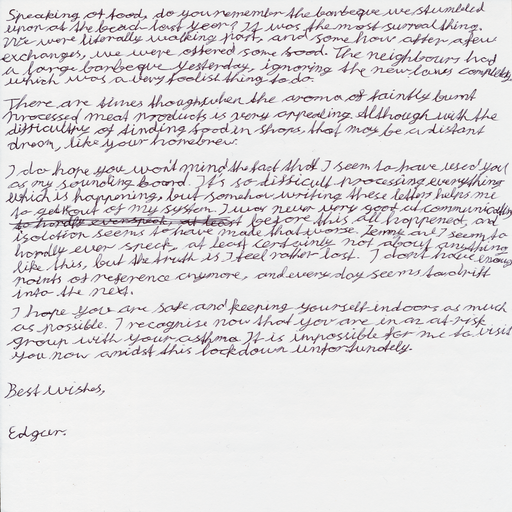 Speaking of food, do you remember the barbeque we stumbled
upon at the beach last year? It was the most surreal thing.
We were literally walking past, and some how after a few
exchanges, we were offered some food. The neighbours had
a large barbeque yesterday, ignoring the new laws completely,
which was a very foolish thing to do.
There are times though when the aroma of faintly burnt
processed meat products is very appealing. Although with the
difficulty of finding food in shops, that may be a distant
dream, like your homebrew.
I do hope you won't mind the fact that I seem to have used you
as my sounding board. It's so difficult processing everything
which is happening, but somehow writing these letters helps me
to get it out of my system. I was never very good at communicating
to hardly ever speak, at least before this all happened, and
isolation seems to have made that worse. Jenny and I seem to
hardly ever speak, at least certainly not about anything
like this, but the truth is I feel rather lost. I don't have any
points of reference anymore, and every day seems to drift
into the next.
I hope you are safe and keeping yourself indoors as much
as possible. I recognise now that you are in an at-risk
group with your asthma. It is impossible for me to visit
you now amidst this lockdown unfortunately.
Best wishes,
Edgar.